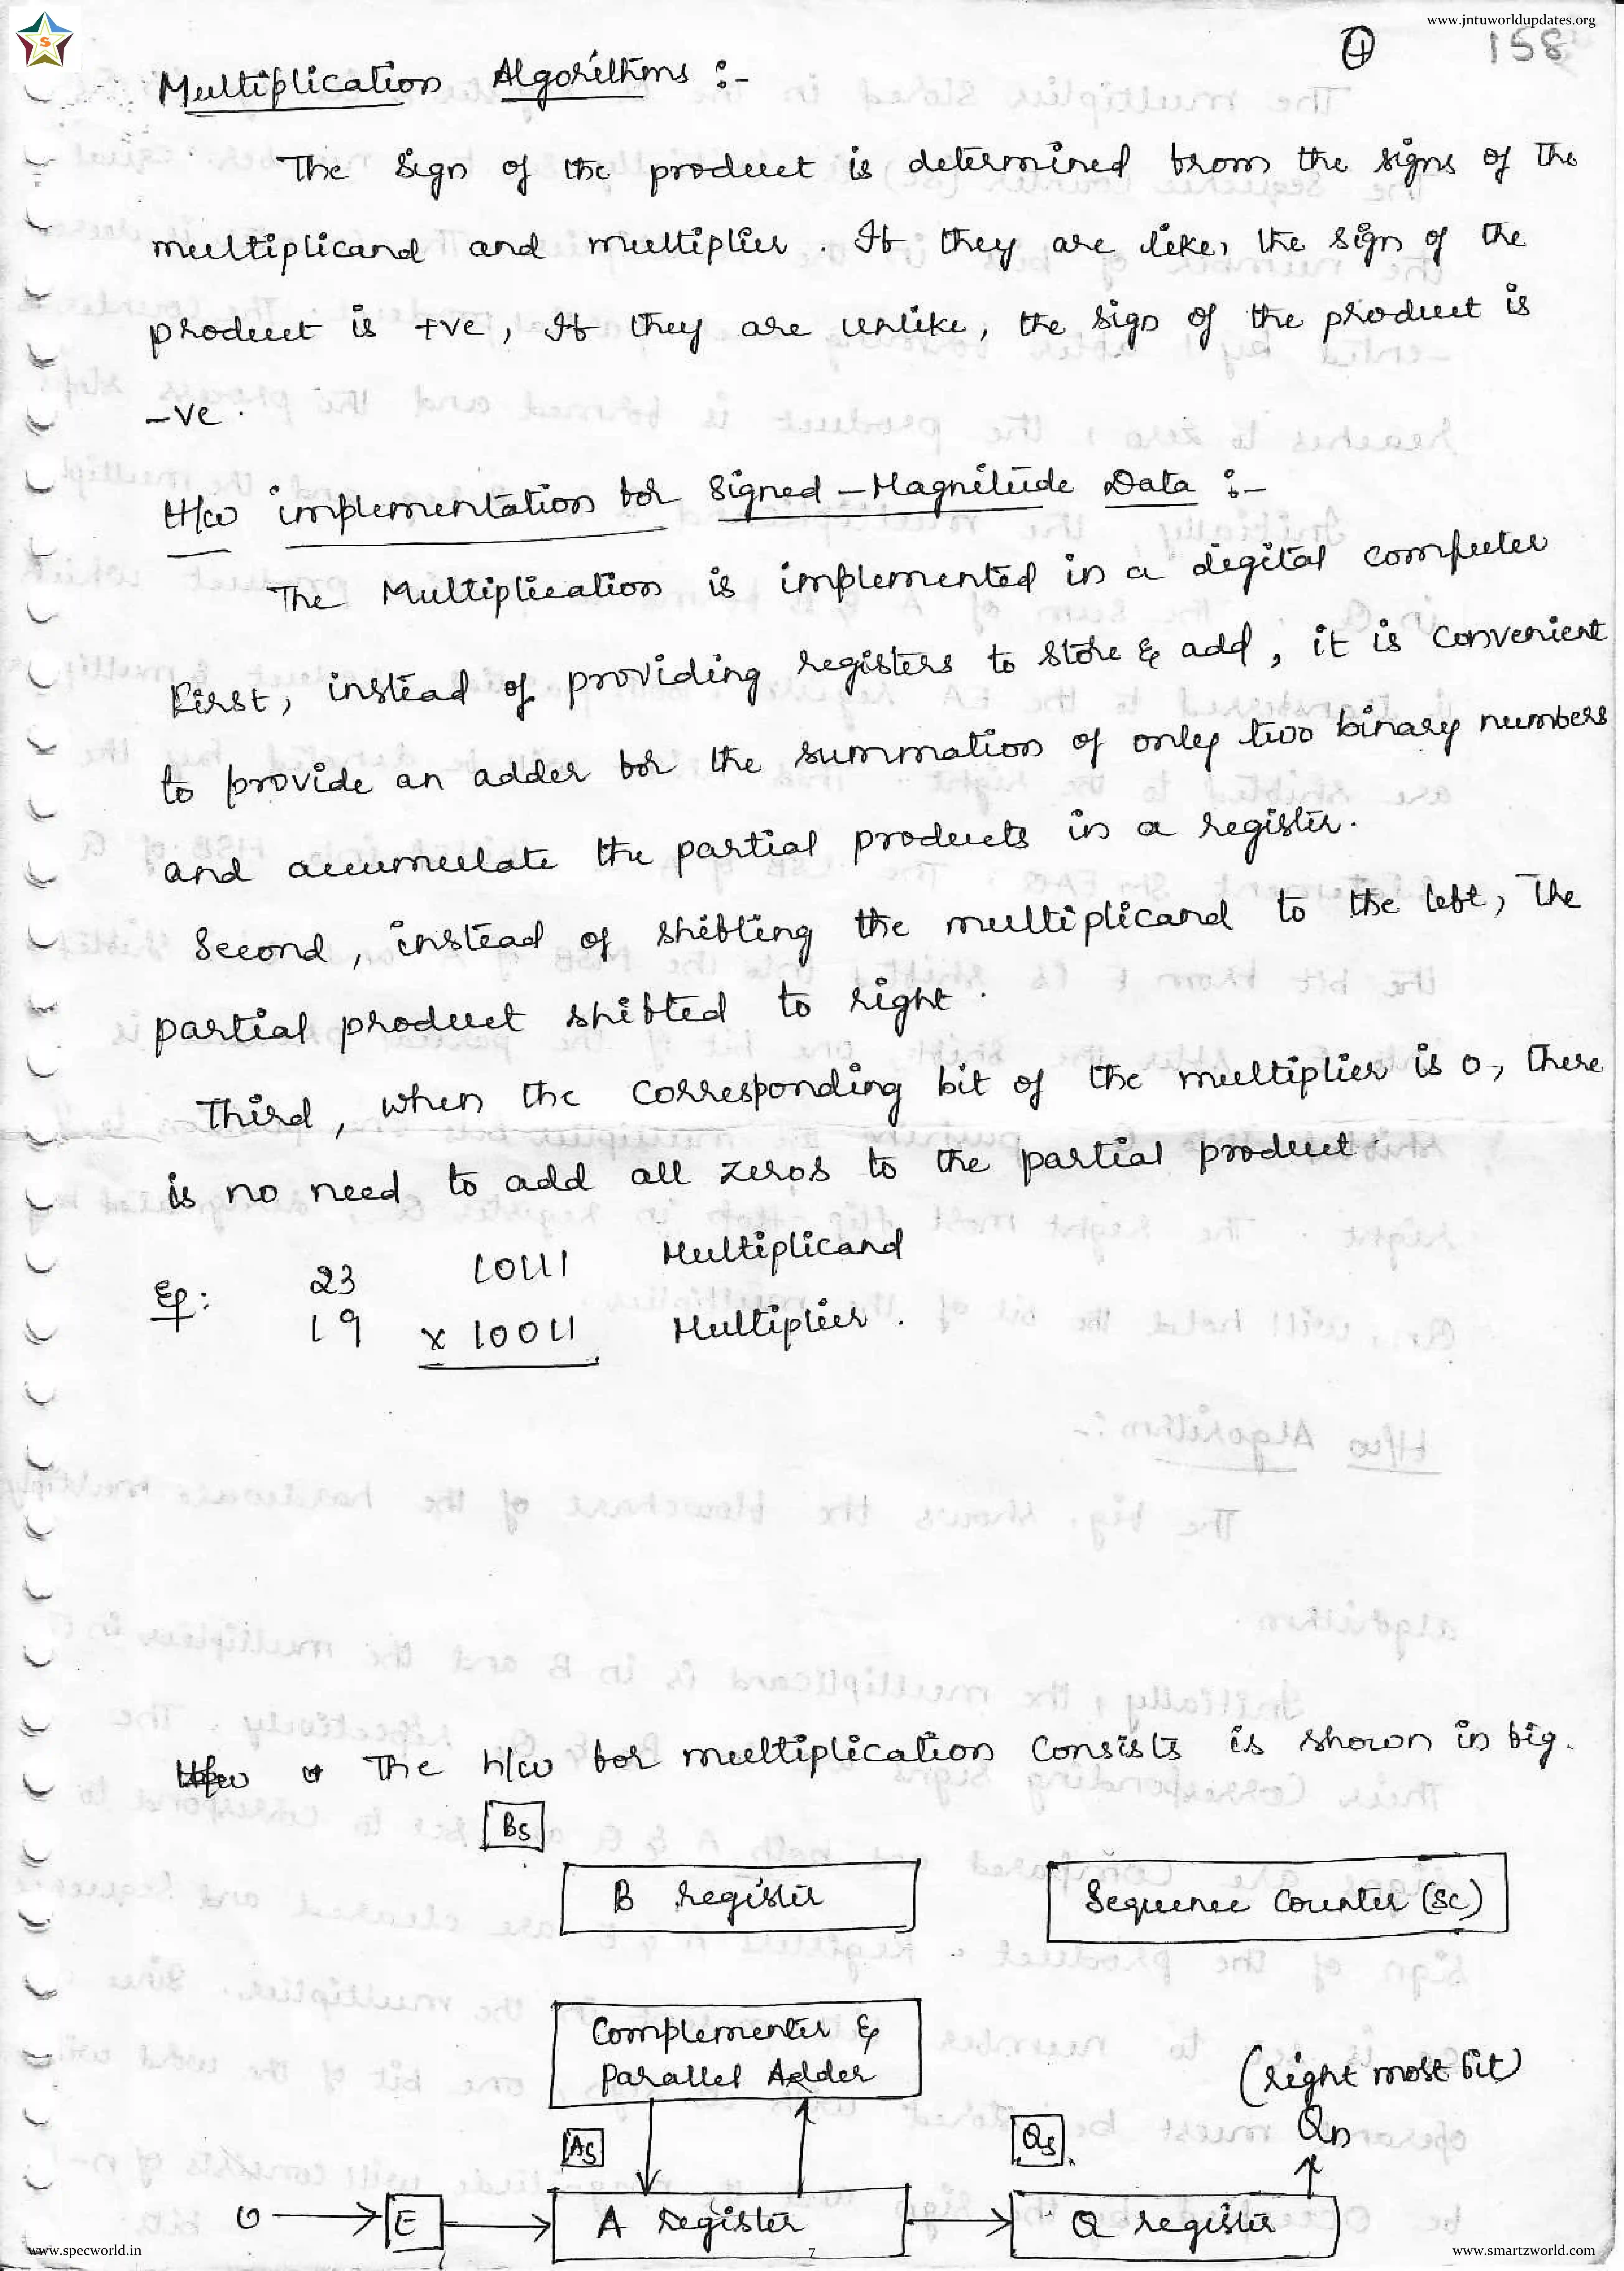 www.jntuworldupdates.org
158
Multiplication Algorithms :-
The sign of the product is determined from the signs of the
multiplicand and multiplier. If they are like, the sign of the
product is +ve, If they are unlike, the sign of the product is
-ve.
H/w implementation for Signed-Magnitude Data :-
The Multiplication is implemented in a digital computer
First, instead of providing registers to store & add, it is convenient
to provide an adder for the summation of only two binary numbers
and accumulate the partial products in a register.
Second, instead of shifting the multiplicand to the left, The
partial product shifted to right.
Third, when the corresponding bit of the multiplier is 0, there
is no need to add all zeros to the partial product.
Eg: 23 10111 Multiplicand
19 x 10011 Multiplier.
The h/w for multiplication consists is shown in fig.
Bs
B register
Sequence Counter (SC)
Complementer &
Parallel Adder
(right most bit)
As
Qs
Qn
0
E
A register
Q register
www.specworld.in
7
www.smartzworld.com